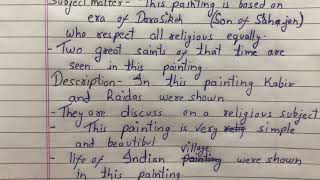 Subject matter- This painting is based on
era of DaraSikoh (Son of Shahjan)
who respect all religious equally.
- Two great saints of that time are
seen in this painting.
Description- In this painting Kabir
and Raidas were shown
- They are discuss on a religious subject
- This painting is very simple
and beautiful
- life of Indian village were shown
in this painting